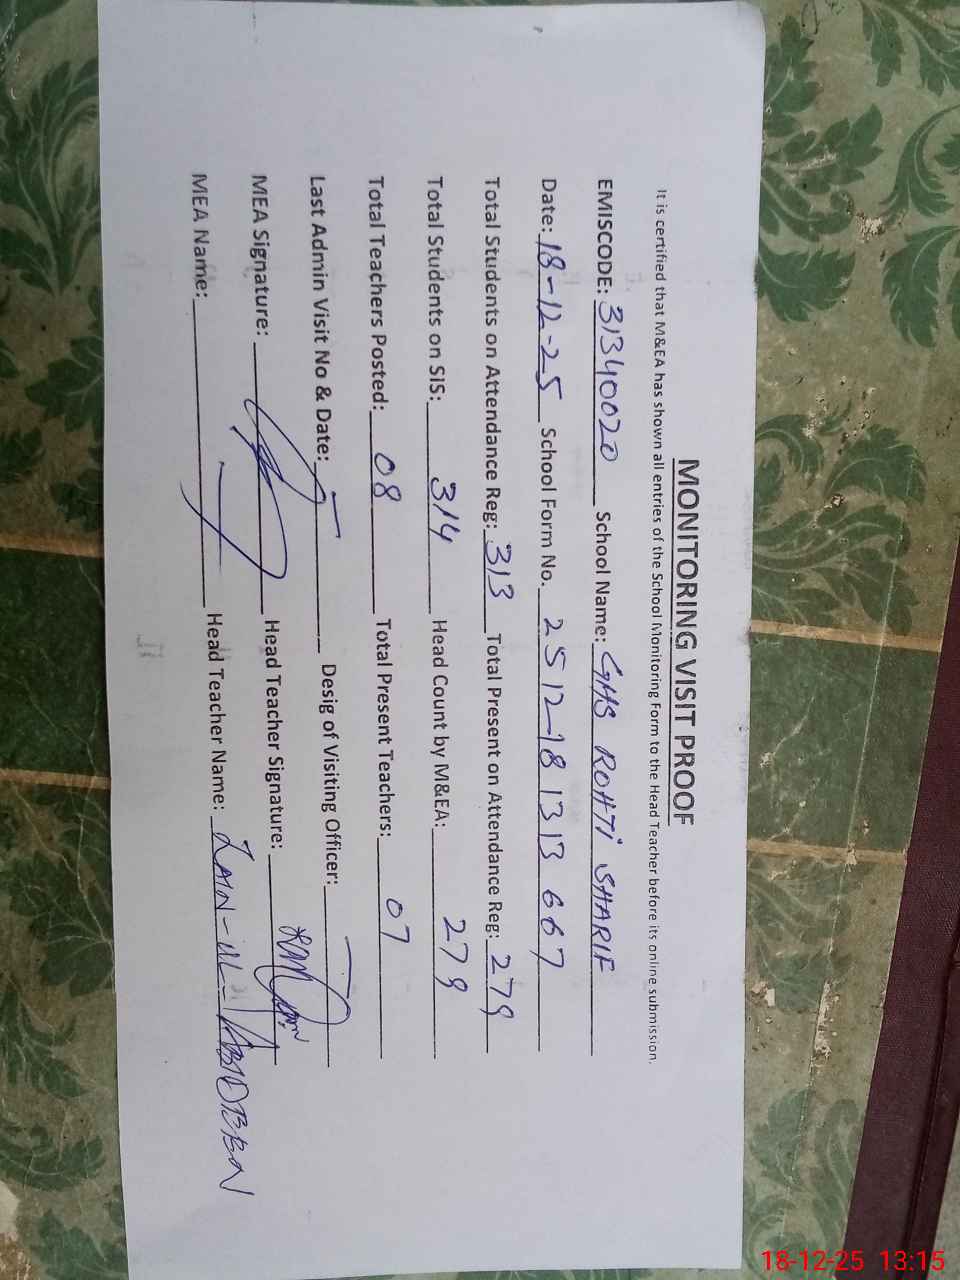 MONITORING VISIT PROOF
It is certified that M&EA has shown all entries of the School Monitoring Form to the Head Teacher before its online submission.
EMISCODE: 31340020 School Name: GHS ROHTI SHARIF
Date: 18-12-25 School Form No. 2512-18 1313 667
Total Students on Attendance Reg: 313 Total Present on Attendance Reg: 279
Total Students on SIS: 314 Head Count by M&EA: 279
Total Teachers Posted: 08 Total Present Teachers: 07
Last Admin Visit No & Date: Desig of Visiting Officer:
MEA Signature: Head Teacher Signature:
MEA Name: Head Teacher Name: ZAIN-UL-
18-12-25 13:15